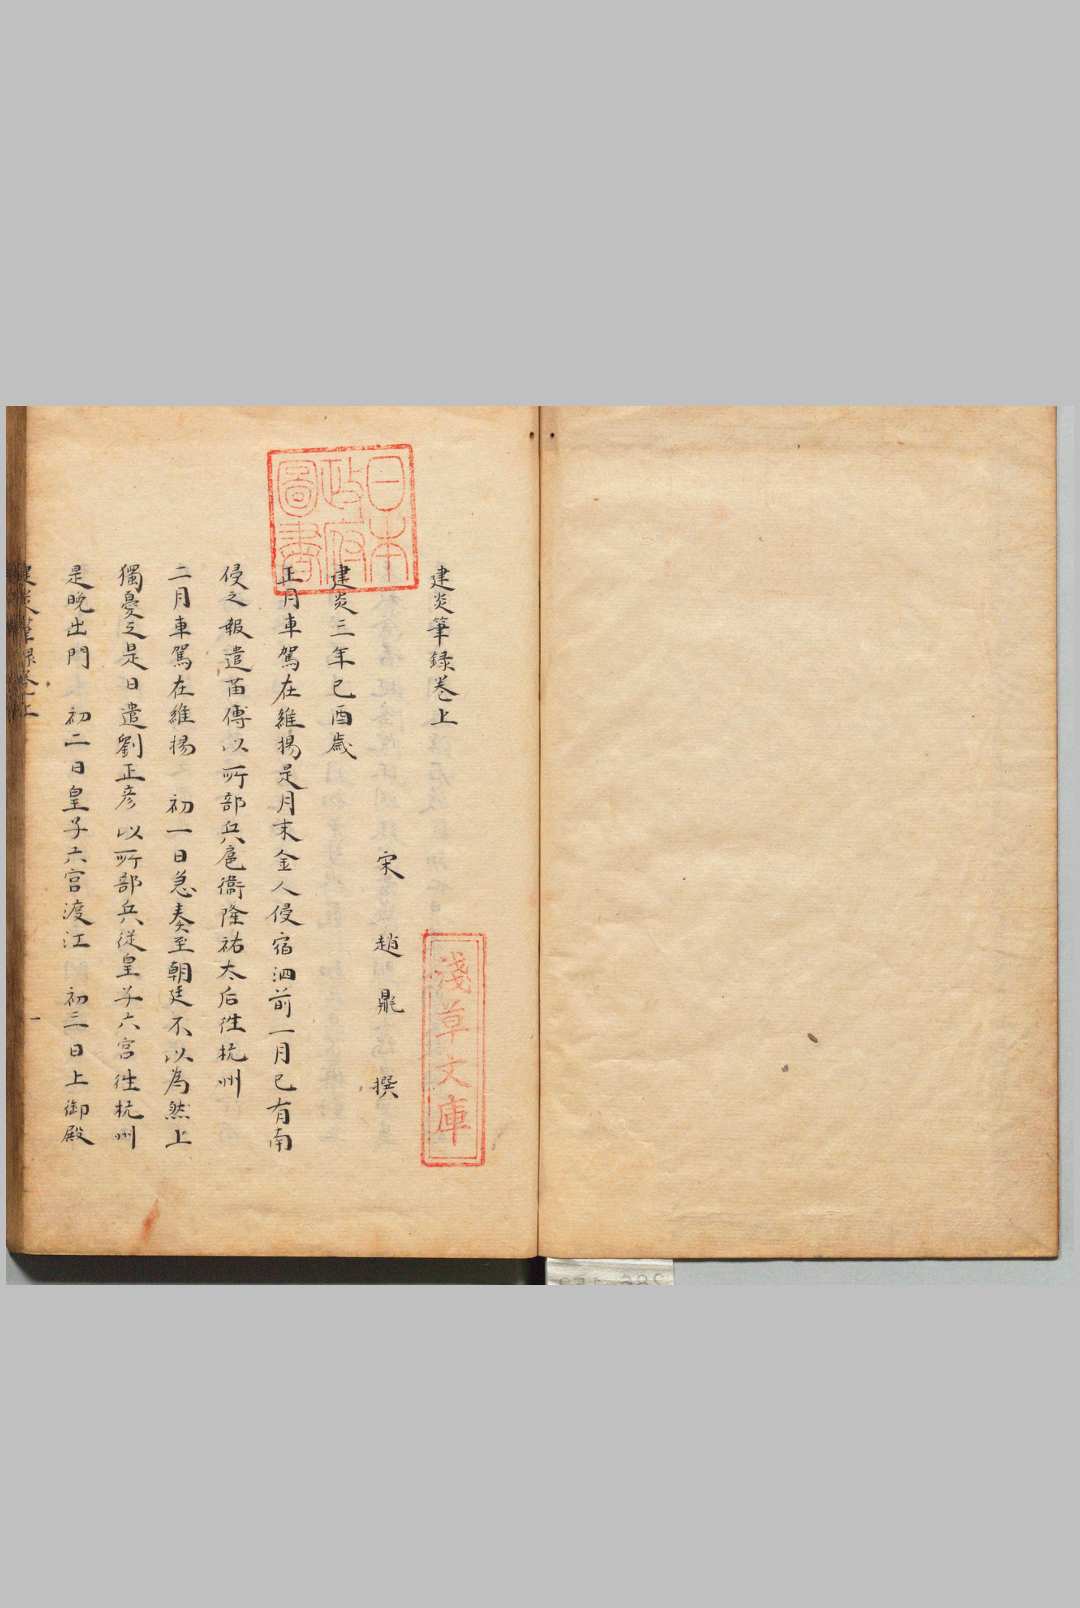 建炎筆録卷上
宋 趙 鼎 撰
建炎三年己酉歲
正月車駕在維揚是月末金人侵宿泗前一月已有南
侵之報遣苗傅以所部兵扈衞隆祐太后徃杭州
二月車駕在維揚 初一日急奏至朝廷不以為然上
獨憂之是日遣劉正彦以所部兵從皇子六宫徃杭州
是晚出門 初二日皇子六宫渡江 初三日上御殿
建炎筆録卷上
一
日本
政府
圖書
淺草文庫